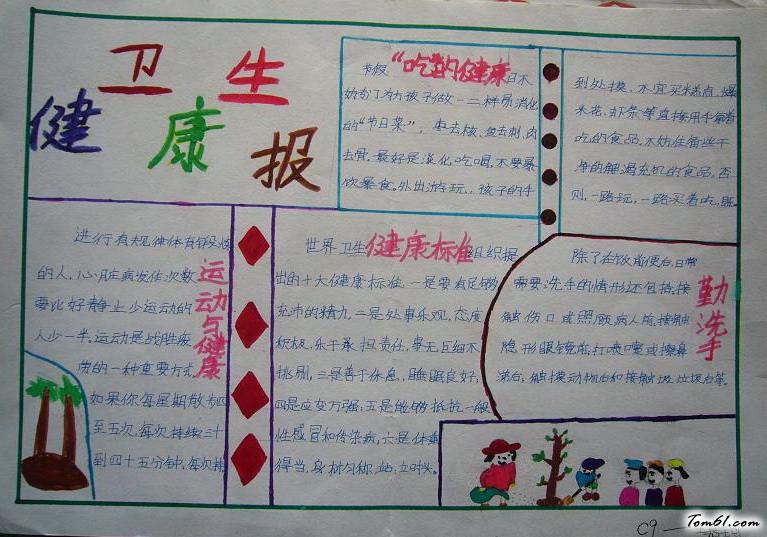 卫生
健康报
"吃"的健康
节假日不
妨专门为孩子做一二样易消化
的"节日菜",枣去核、鱼去刺、肉
去骨,最好是淡化吃喝,不要暴
饮暴食。外出游玩,孩子的手
到处摸,不宜买糕点、爆
米花、虾条等直接用手拿着
吃的食品,不妨准备些干
净的解渴充饥的食品,否
则,一路玩,一路买着吃,既
运动与健康
进行有规律体育锻炼
的人,心脏病发作次数
要比好静止少运动的
人少一半。运动是战胜疲
劳的一种重要方式,
如果你每星期散步四
至五次,每次持续三十
到四十五分钟,每次持
健康标准
世界卫生组织提
出的十大健康标准。一是要有足够
充沛的精力,二是处事乐观,态度
积极,乐于承担责任,事无巨细不
挑剔,三是善于休息,睡眠良好;
四是应变力强;五是能够抵抗一般
性感冒和传染病;六是体重
得当,身材匀称,站立时头。
勤洗手
除了在饭前便后,日常
需要洗手的情形还包括:接
触伤口或照顾病人前,接触
隐形眼镜前,打喷嚏或擤鼻
涕后,触摸动物后和接触垃圾后等。
C9
Tom61.com